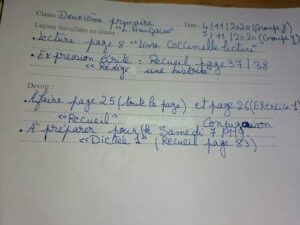 Classe Deuxième primaire Date 4/11/2020 (Groupe X)
Leçons travaillées en classe "français" 5/11/2020 (Groupe Y)
• Lecture page 8 "Mme Coccinelle lecture"
• Expression Écrite : Recueil page 37/38
"Rédige une histoire"
Devoir :
• À faire page 25 (toute la page) et page 26 (Exercice 1)
"Recueil" Conjugaison
• À préparer pour Samedi 7 Nov
"Dictée 1" (Recueil page 83)